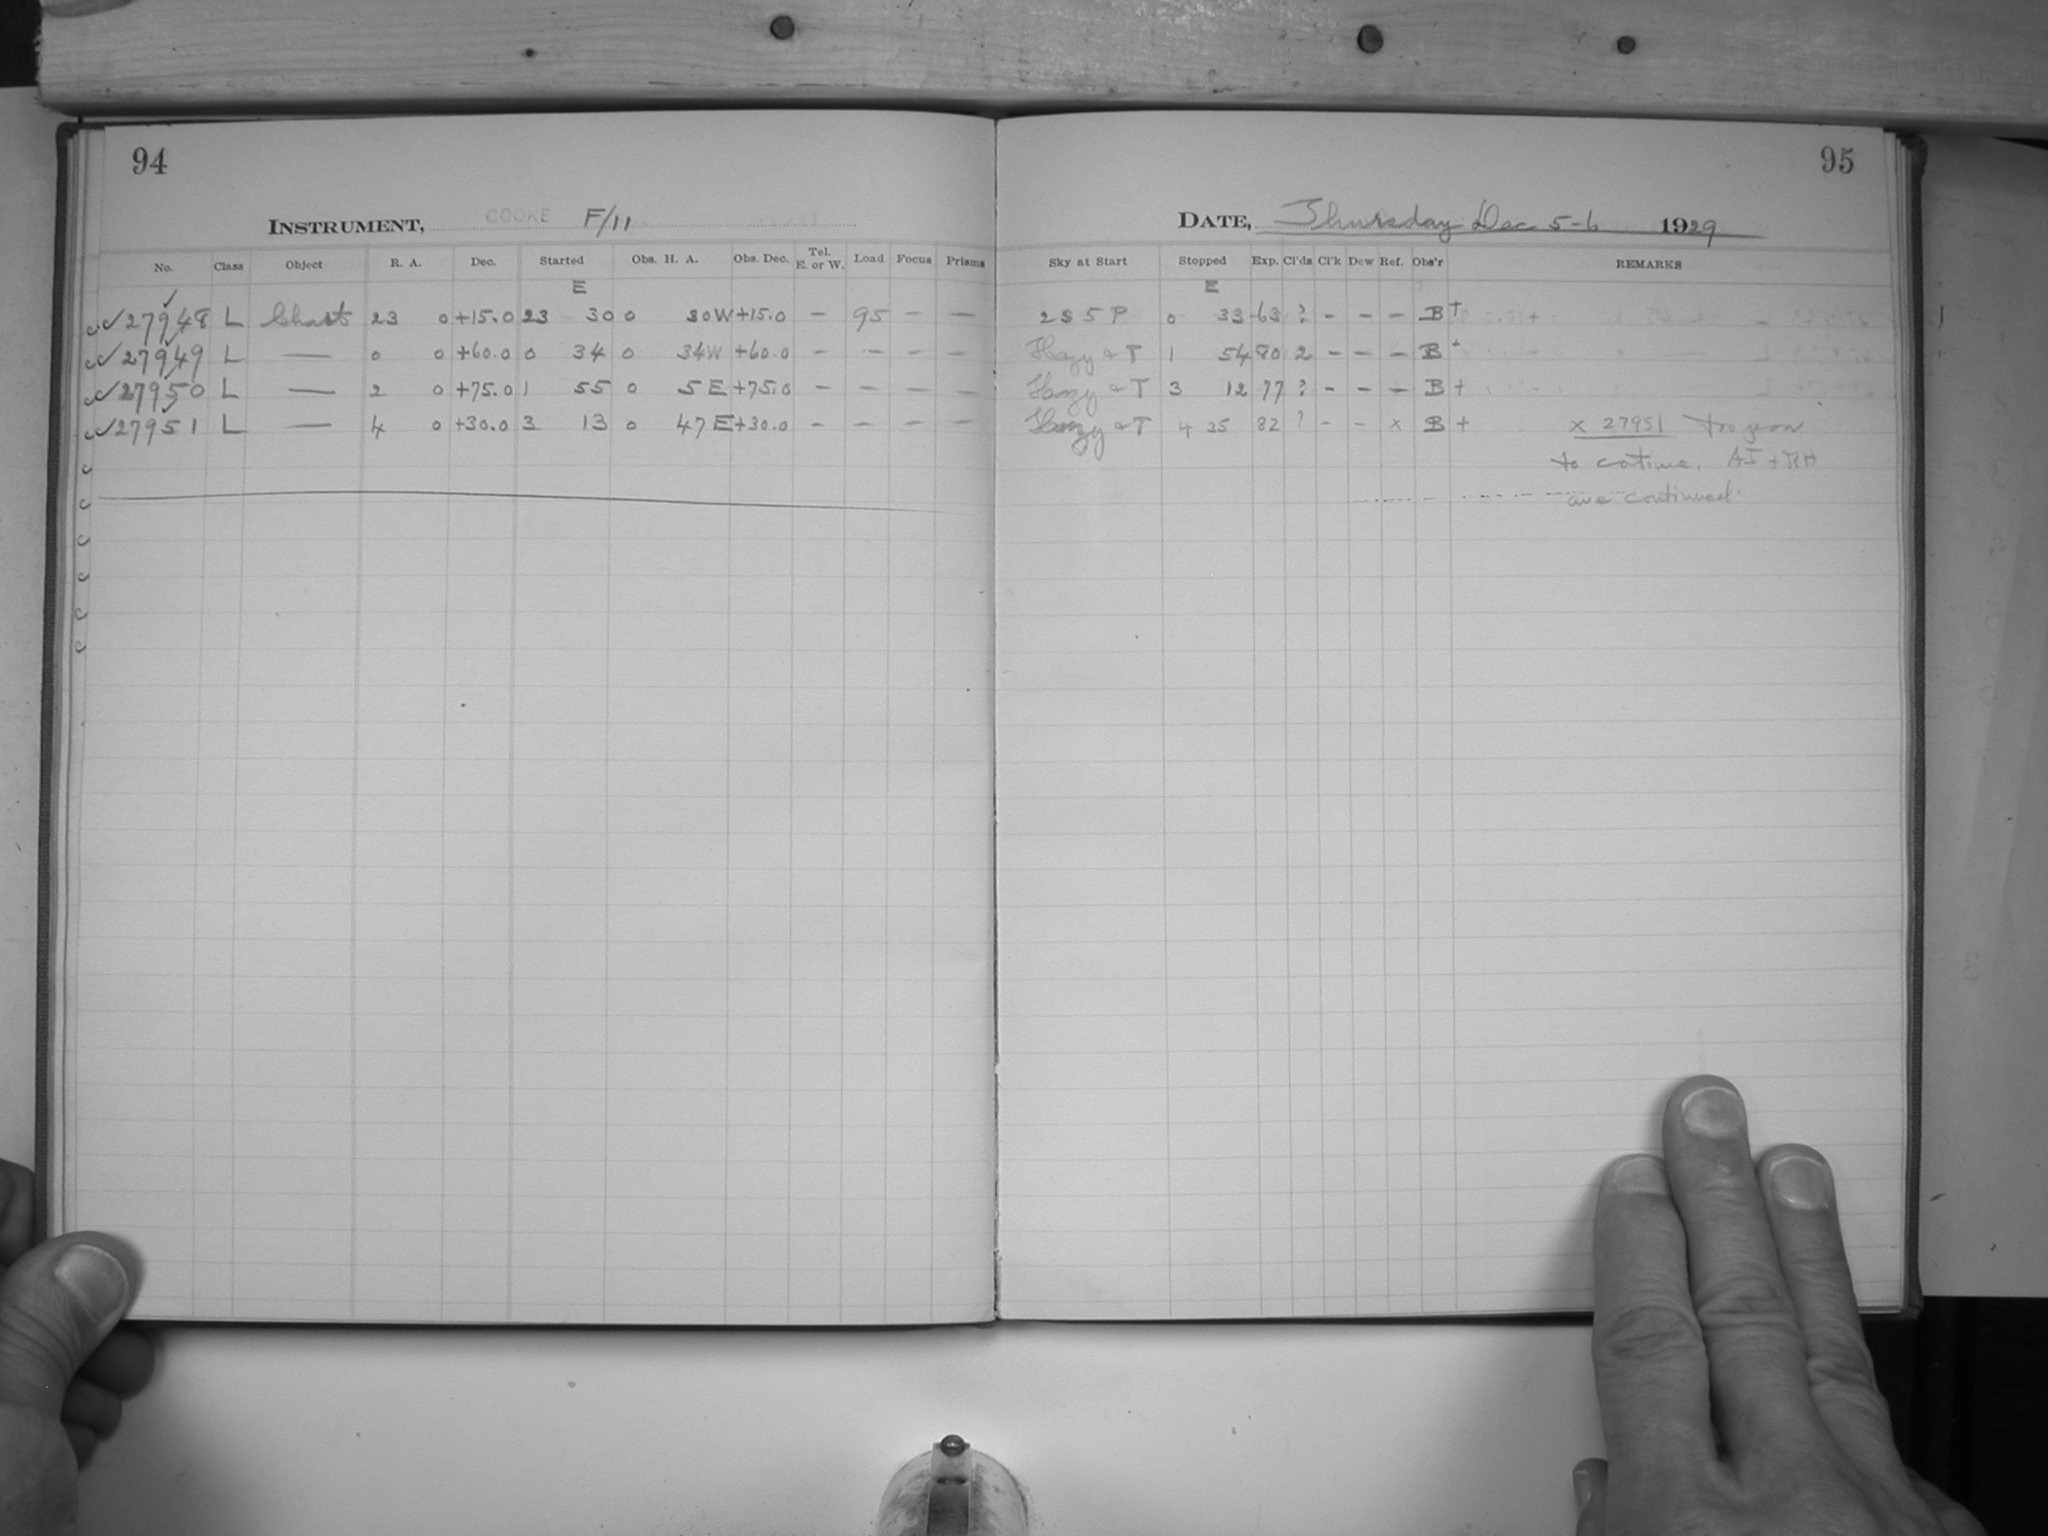 94
INSTRUMENT, COOKE F/11
No. Class Object R. A. Dec. Started Obs. H. A. Obs. Dec. Tel. E. or W. Load Focus Prisms
E
✓27948 L Chart 23 0 +15.0 23 30 0 30W +15.0 – 95 – –
✓27949 L — 0 0 +60.0 0 34 0 34W +60.0 – – – –
✓27950 L — 2 0 +75.0 1 55 0 5E +75.0 – – – –
✓27951 L — 4 0 +30.0 3 13 0 47E +30.0 – – – –
95
DATE, Thursday Dec 5-6 1929
Sky at Start Stopped Exp. Cl'ds Cl'k Dew Ref. Obs'r REMARKS
E
2 S 5 P 0 33 63 ? – – – B +
Hazy + T 1 54 80 2 – – – B +
Hazy + T 3 12 77 ? – – – B +
Hazy + T 4 35 82 ? – – x B + x 27951 Too poor
to continue. AI + RH
are continued.